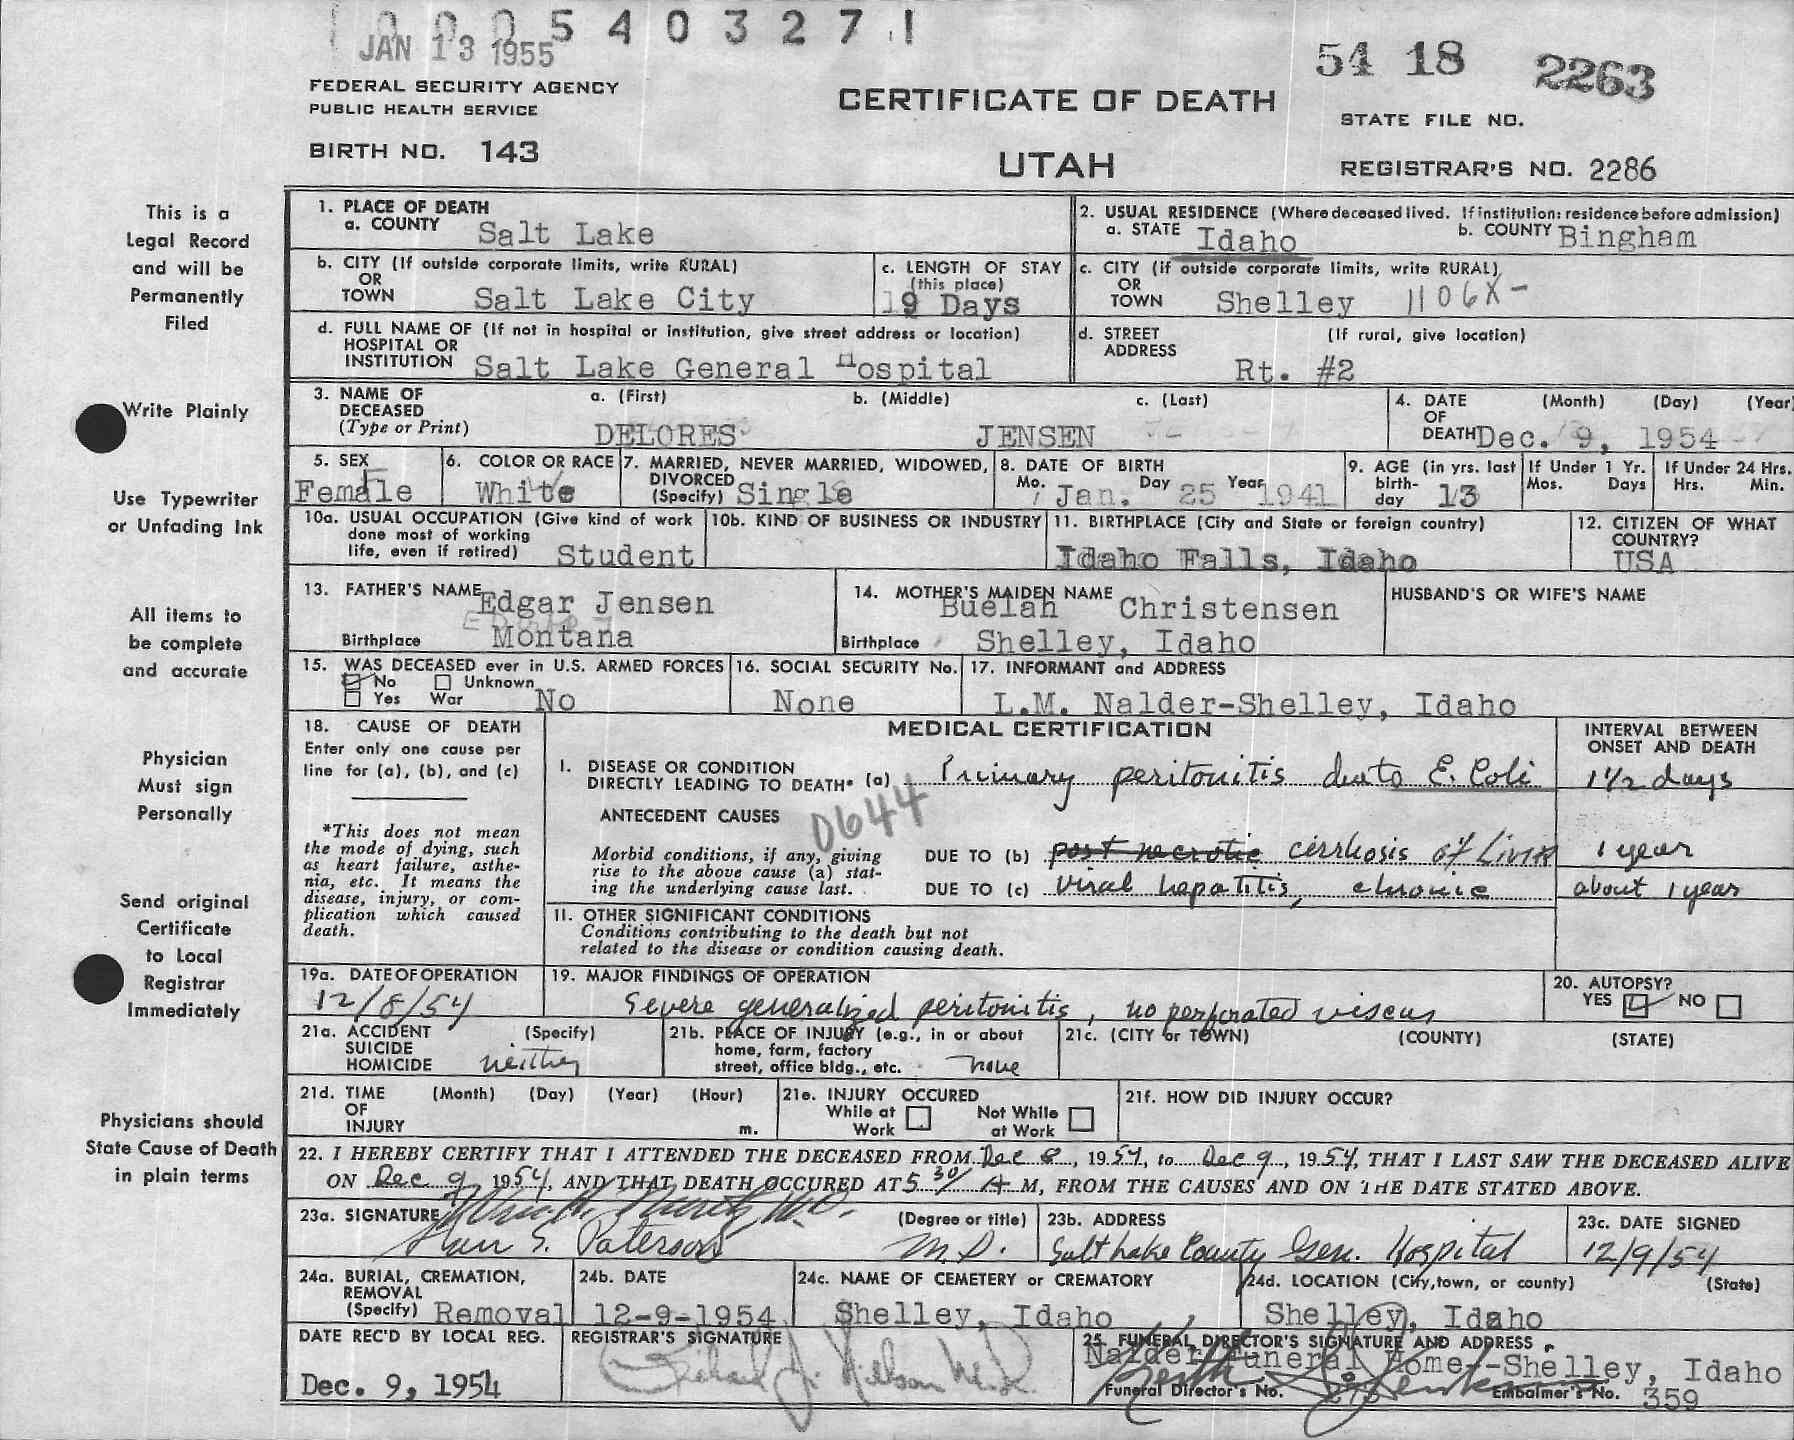 0005403271
JAN 13 1955
54 18 2263
FEDERAL SECURITY AGENCY
PUBLIC HEALTH SERVICE
CERTIFICATE OF DEATH
STATE FILE NO.
BIRTH NO. 143
UTAH
REGISTRAR'S NO. 2286
This is a
Legal Record
and will be
Permanently
Filed
Write Plainly
Use Typewriter
or Unfading Ink
All items to
be complete
and accurate
Physician
Must sign
Personally
Send original
Certificate
to Local
Registrar
Immediately
Physicians should
State Cause of Death
in plain terms
1. PLACE OF DEATH
a. COUNTY Salt Lake
2. USUAL RESIDENCE (Where deceased lived. If institution: residence before admission)
a. STATE Idaho b. COUNTY Bingham
b. CITY (If outside corporate limits, write RURAL)
OR
TOWN Salt Lake City
c. LENGTH OF STAY
(this place)
19 Days
c. CITY (if outside corporate limits, write RURAL)
OR
TOWN Shelley 1106X-
d. FULL NAME OF (If not in hospital or institution, give street address or location)
HOSPITAL OR
INSTITUTION Salt Lake General Hospital
d. STREET (If rural, give location)
ADDRESS Rt. #2
3. NAME OF a. (First) b. (Middle) c. (Last)
DECEASED
(Type or Print) DELORES JENSEN
4. DATE (Month) (Day) (Year)
OF
DEATH Dec. 9, 1954
5. SEX
F
Female
6. COLOR OR RACE
White
7. MARRIED, NEVER MARRIED, WIDOWED,
DIVORCED
(Specify) Single
8. DATE OF BIRTH
Mo. Jan. Day 25 Year 1941
9. AGE (in yrs. last
birth-
day 13
If Under 1 Yr.
Mos. Days
If Under 24 Hrs.
Hrs. Min.
10a. USUAL OCCUPATION (Give kind of work
done most of working
life, even if retired) Student
10b. KIND OF BUSINESS OR INDUSTRY
11. BIRTHPLACE (City and State or foreign country)
Idaho Falls, Idaho
12. CITIZEN OF WHAT
COUNTRY?
USA
13. FATHER'S NAME Edgar Jensen
Birthplace Montana
14. MOTHER'S MAIDEN NAME
Buelah Christensen
Birthplace Shelley, Idaho
HUSBAND'S OR WIFE'S NAME
15. WAS DECEASED ever in U.S. ARMED FORCES
No Unknown
Yes War No
16. SOCIAL SECURITY No.
None
17. INFORMANT and ADDRESS
L.M. Nalder-Shelley, Idaho
18. CAUSE OF DEATH
Enter only one cause per
line for (a), (b), and (c)
*This does not mean
the mode of dying, such
as heart failure, asthe-
nia, etc. It means the
disease, injury, or com-
plication which caused
death.
MEDICAL CERTIFICATION
INTERVAL BETWEEN
ONSET AND DEATH
I. DISEASE OR CONDITION
DIRECTLY LEADING TO DEATH* (a) Primary peritonitis due to E. Coli 1 1/2 days
ANTECEDENT CAUSES 0644
Morbid conditions, if any, giving
rise to the above cause (a) stat-
ing the underlying cause last.
DUE TO (b) post necrotic cirrhosis of Liver 1 year
DUE TO (c) Viral hepatitis, chronic about 1 year
II. OTHER SIGNIFICANT CONDITIONS
Conditions contributing to the death but not
related to the disease or condition causing death.
19a. DATE OF OPERATION
12/8/54
19. MAJOR FINDINGS OF OPERATION
Severe generalized peritonitis, no perforated viscus
20. AUTOPSY?
YES NO
21a. ACCIDENT (Specify)
SUICIDE
HOMICIDE neither
21b. PLACE OF INJURY (e.g., in or about
home, farm, factory
street, office bldg., etc. none
21c. (CITY or TOWN) (COUNTY) (STATE)
21d. TIME (Month) (Day) (Year) (Hour)
OF
INJURY m.
21e. INJURY OCCURED
While at Work Not While at Work
21f. HOW DID INJURY OCCUR?
22. I HEREBY CERTIFY THAT I ATTENDED THE DECEASED FROM Dec 8, 1954, to Dec 9, 1954, THAT I LAST SAW THE DECEASED ALIVE
ON Dec 9 1954, AND THAT DEATH OCCURED AT 5 30 A M, FROM THE CAUSES AND ON THE DATE STATED ABOVE.
23a. SIGNATURE (Degree or title)
S. Paterson M.D.
23b. ADDRESS
Salt Lake County Gen. Hospital
23c. DATE SIGNED
12/9/54
24a. BURIAL, CREMATION,
REMOVAL
(Specify) Removal
24b. DATE
12-9-1954
24c. NAME OF CEMETERY or CREMATORY
Shelley, Idaho
24d. LOCATION (City, town, or county) (State)
Shelley, Idaho
DATE REC'D BY LOCAL REG.
Dec. 9, 1954
REGISTRAR'S SIGNATURE
25. FUNERAL DIRECTOR'S SIGNATURE AND ADDRESS
Nalder Funeral Home--Shelley, Idaho
Funeral Director's No. Embalmer's No. 359